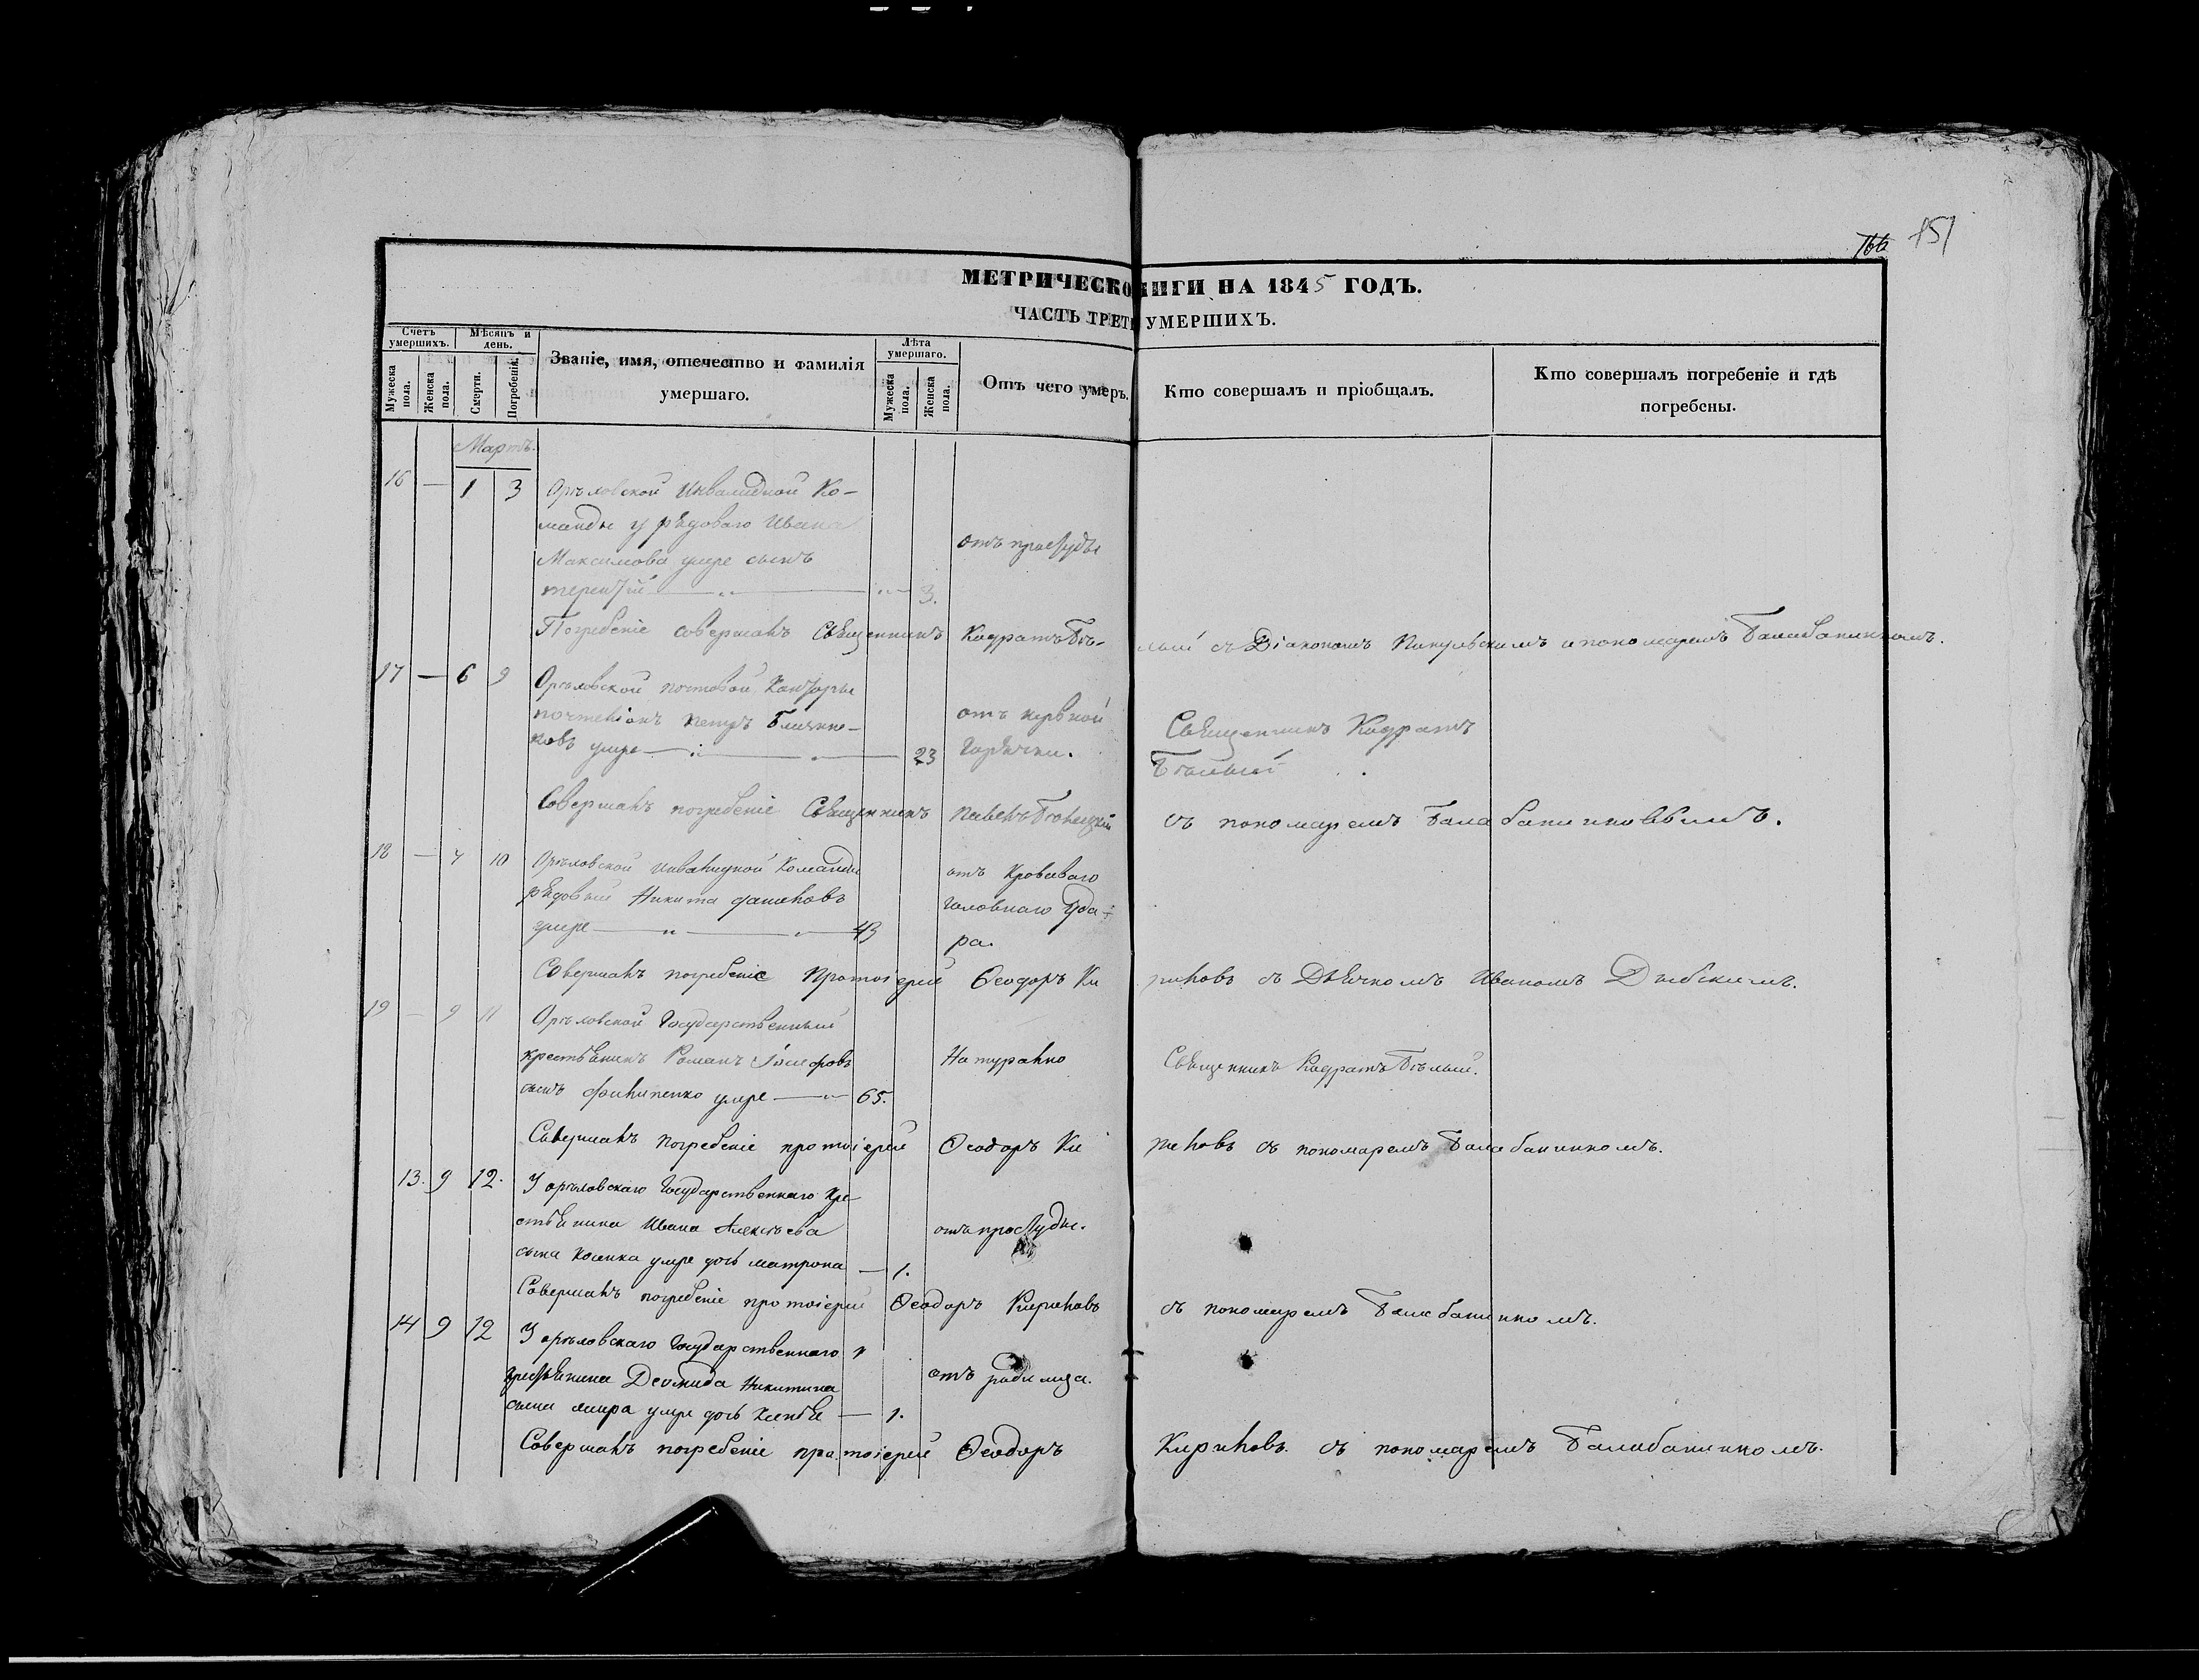 166 151
МЕТРИЧЕСКО ИГИ НА 1845 ГОДЪ.
ЧАСТЬ ТРЕТ УМЕРШИХЪ.
Счетъ умершихъ.
Мужеска пола.
Женска пола.
Мѣсяцъ и день.
Смерти.
Погребенія.
Званіе, имя, отечество и фамилія
умершаго.
Лѣта умершаго.
Мужеска пола.
Женска пола.
Отъ чего умеръ.
Кто совершалъ и пріобщалъ.
Кто совершалъ погребеніе и гдѣ
погребены.
Мартъ.
16 — 1 3 Орѣловской Инвалидной Ко-
манды у рядоваго Ивана
Максимова умре сынъ
терентій — 3.
отъ простуды
Погребеніе совершалъ Священникъ Кодратъ Бѣ- лый съ Діакономъ Пикульскимъ и пономаремъ
17 — 6 9 Орѣловской почтовой Конторы
почталіонъ Петръ
умре — 23
отъ нервной
горячки.
Священникъ Кодратъ
Бѣлый
Совершалъ погребеніе Священникъ Павелъ съ пономаремъ
18 — 7 10 Орѣловской инвалидной Команды
рядовый Никита
умре — 43
отъ Кроваваго
головнаго Уда-
ра.
Совершалъ погребеніе Протоіерей Ѳеодоръ Ки риловъ съ Дьячкомъ Иваномъ
19 — 9 11 Орѣловской Государственный
крестьянинъ Романъ Іосифовъ
сынъ Филипенко умре — 65.
Натурально
Священникъ Кодратъ Бѣлый.
Совершалъ погребеніе протоіерей Ѳеодоръ Ки риловъ съ пономаремъ
13. 9 12. У орѣловскаго Государственнаго Кре-
стьянина Ивана Алексѣева
сына умре дочь матрона — 1.
отъ простуды.
Совершалъ погребеніе протоіерей Ѳеодоръ Кириловъ съ пономаремъ
14 9 12 У орѣловскаго Государственнаго
крестьянина Никитина
сына умре дочь — 1.
отъ родимца.
Совершалъ погребеніе протоіерей Ѳеодоръ Кириловъ съ пономаремъ